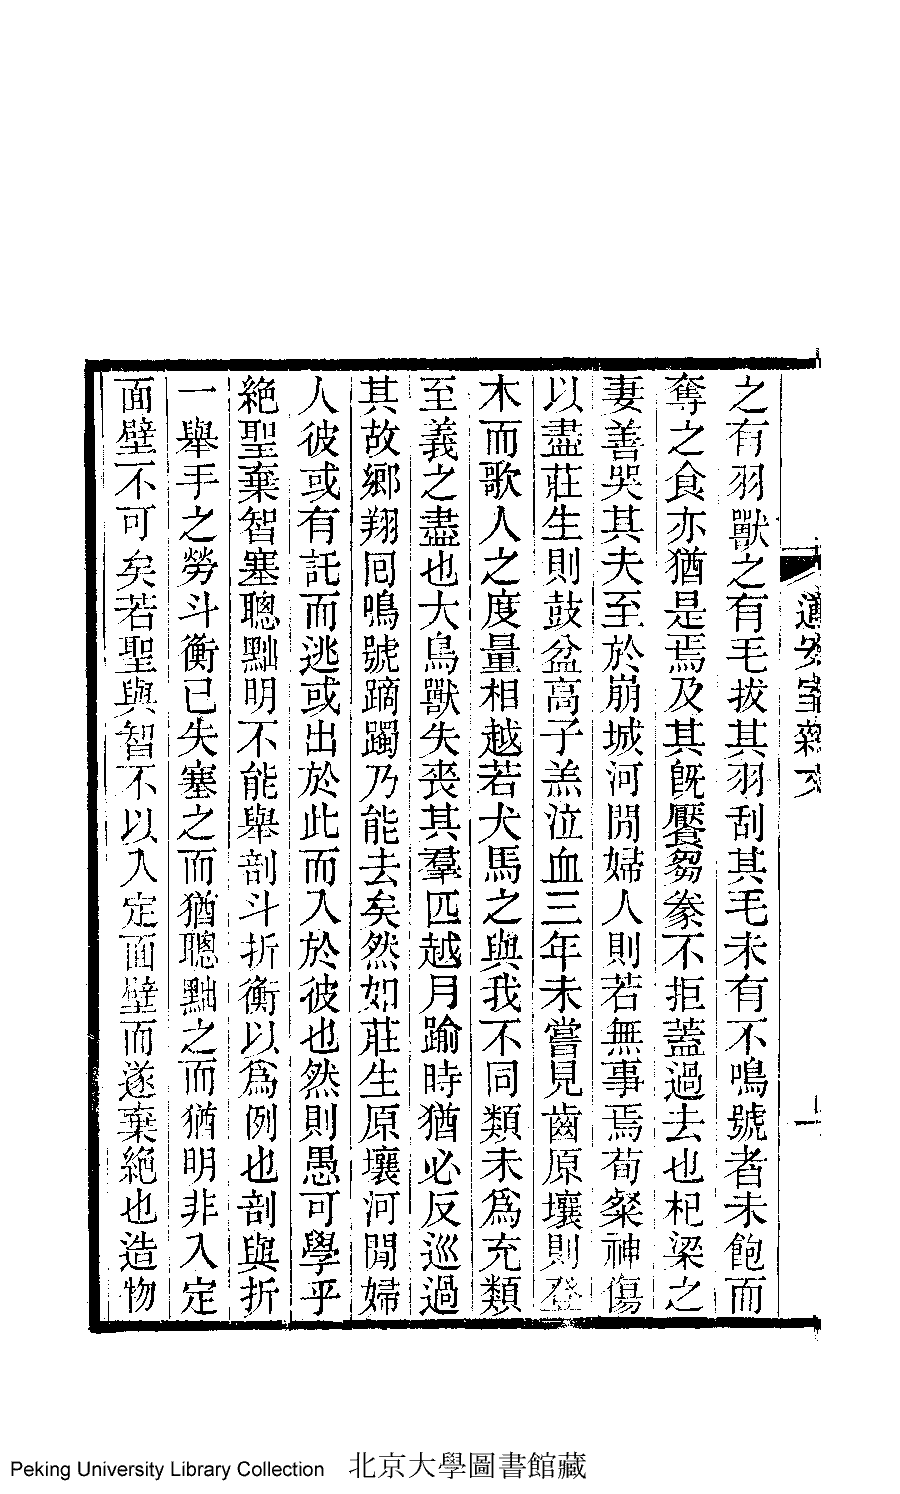 之有羽獸之有毛拔其羽刮其毛未有不鳴號者未飽而
奪之食亦猶是焉及其旣饜芻豢不拒蓋過去也杞梁之
妻善哭其夫至於崩城河閒婦人則若無事焉荀粲神傷
以盡莊生則鼓盆高子羔泣血三年未嘗見齒原壤則登
木而歌人之度量相越若犬馬之與我不同類未爲充類
至義之盡也大鳥獸失喪其羣匹越月踰時猶必反巡過
其故鄉翔囘鳴號蹢躅乃能去矣然如莊生原壤河閒婦
人彼或有託而逃或出於此而入於彼也然則愚可學乎
絕聖棄智塞聰黜明不能舉剖斗折衡以爲例也剖與折
一舉手之勞斗衡已失塞之而猶聰黜之而猶明非入定
面壁不可矣若聖與智不以入定面壁而遂棄絕也造物
適安室雜文
Peking University Library Collection 北京大學圖書館藏